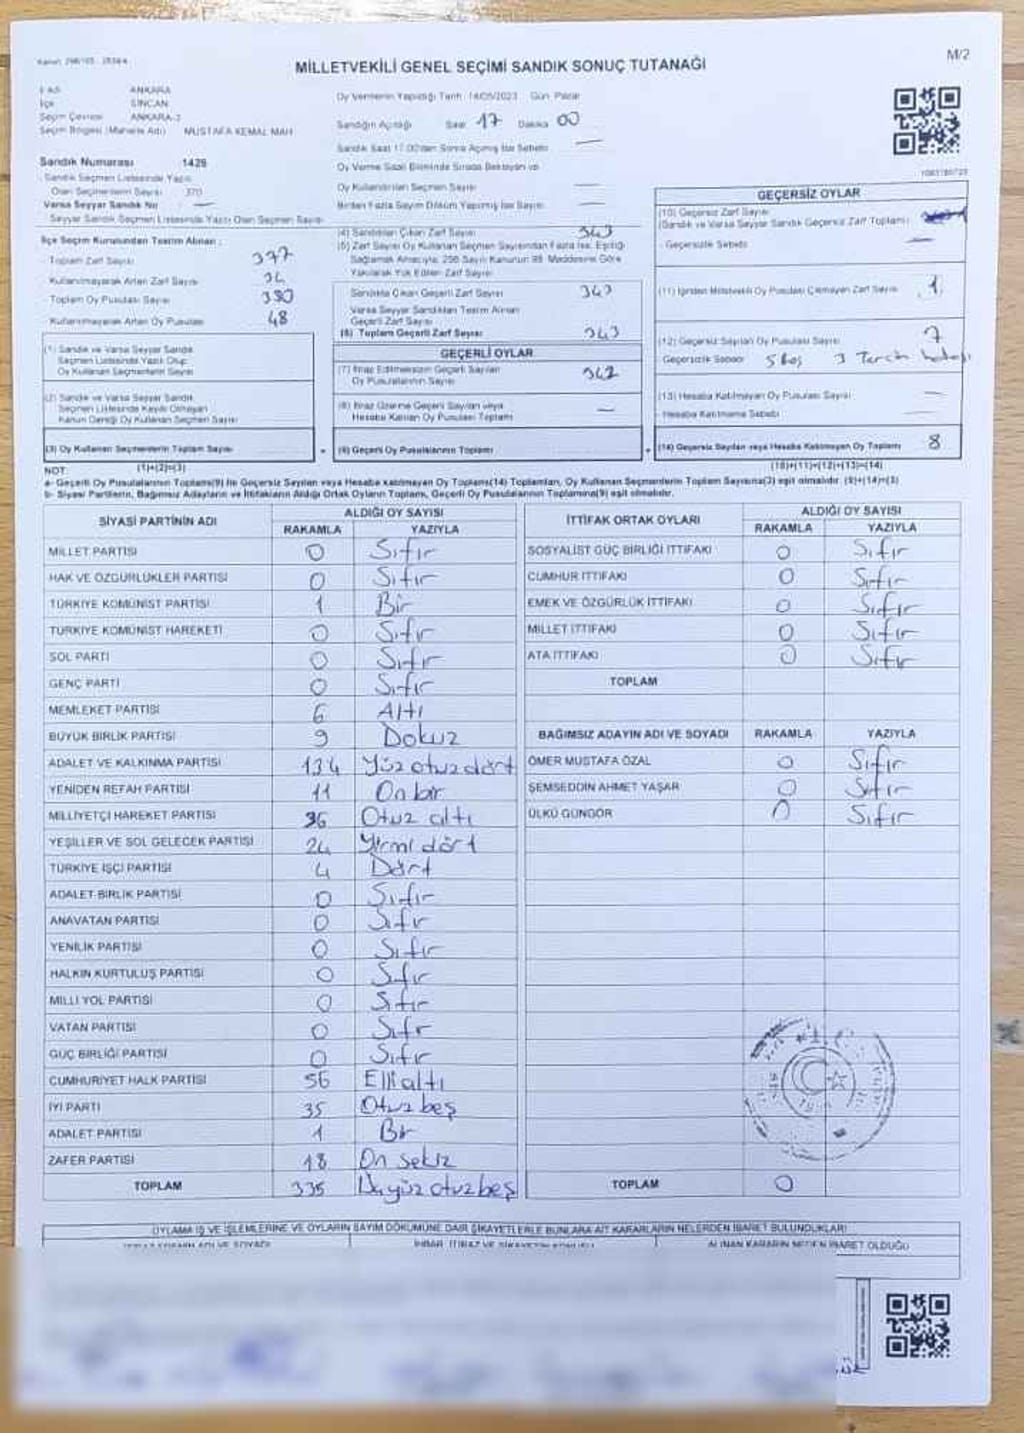 M/2
MİLLETVEKİLİ GENEL SEÇİMİ SANDIK SONUÇ TUTANAĞI
İl Adı ANKARA
İlçe SİNCAN
Seçim Çevresi ANKARA-3
Seçim Bölgesi (Mahalle Adı) MUSTAFA KEMAL MAH
Sandık Numarası 1426
Sandık Seçmen Listesinde Yazılı
Olan Seçmenlerin Sayısı 370
Varsa Seyyar Sandık No —
Seyyar Sandık Seçmen Listesinde Yazılı Olan Seçmen Sayısı
Oy Vermenin Yapıldığı Tarih 14/05/2023 Gün Pazar
Sandığın Açıldığı Saat 17 Dakika 00
Sandık Saat 17.00'den Sonra Açılmış İse Sebebi —
Oy Verme Saati Bitiminde Sırada Bekleyen ve
Oy Kullandırılan Seçmen Sayısı —
Birden Fazla Sayım Döküm Yapılmış İse Sayısı —
İlçe Seçim Kurulundan Teslim Alınan :
Toplam Zarf Sayısı 377
Kullanılmayarak Artan Zarf Sayısı 34
Toplam Oy Pusulası Sayısı
Kullanılmayarak Artan Oy Pusulası 48
(1) Sandık ve Varsa Seyyar Sandık
Seçmen Listesinde Yazılı Olup
Oy Kullanan Seçmenlerin Sayısı
(2) Sandık ve Varsa Seyyar Sandık
Seçmen Listesinde Kayıtlı Olmayan
Kanun Gereği Oy Kullanan Seçmen Sayısı
(3) Oy Kullanan Seçmenlerin Toplam Sayısı
(1)+(2)=(3)
(4) Sandıktan Çıkan Zarf Sayısı 343
(5) Zarf Sayısı Oy Kullanan Seçmen Sayısından Fazla İse, Eşitliği
Sağlamak Amacıyla, 298 Sayılı Kanunun 98. Maddesine Göre
Yakılarak Yok Edilen Zarf Sayısı
Sandıkta Çıkan Geçerli Zarf Sayısı 343
Varsa Seyyar Sandıktan Teslim Alınan
Geçerli Zarf Sayısı
(6) Toplam Geçerli Zarf Sayısı 343
GEÇERLİ OYLAR
(7) İtiraz Edilmeksizin Geçerli Sayılan
Oy Pusulalarının Sayısı 342
(8) İtiraz Üzerine Geçerli Sayılan veya
Hesaba Katılan Oy Pusulası Toplamı —
(9) Geçerli Oy Pusulalarının Toplamı
GEÇERSİZ OYLAR
(10) Geçersiz Zarf Sayısı
(Sandık ve Varsa Seyyar Sandık Geçersiz Zarf Toplamı)
Geçersizlik Sebebi —
(11) İçinden Milletvekili Oy Pusulası Çıkmayan Zarf Sayısı 1
(12) Geçersiz Sayılan Oy Pusulası Sayısı 7
Geçersizlik Sebebi 5 boş 3 Tercih hatası
(13) Hesaba Katılmayan Oy Pusulası Sayısı —
Hesaba Katılmama Sebebi —
(14) Geçersiz Sayılan veya Hesaba Katılmayan Oy Toplamı 8
(10)+(11)+(12)+(13)=(14)
NOT:
a- Geçerli Oy Pusulalarının Toplamı(9) ile Geçersiz Sayılan veya Hesaba katılmayan Oy Toplamı(14) Toplamları, Oy Kullanan Seçmenlerin Toplam Sayısına(3) eşit olmalıdır. (9)+(14)=(3)
b- Siyasi Partilerin, Bağımsız Adayların ve İttifakların Aldığı Ortak Oyların Toplamı, Geçerli Oy Pusulalarının Toplamına(9) eşit olmalıdır.
SİYASİ PARTİNİN ADI ALDIĞI OY SAYISI
RAKAMLA YAZIYLA
MİLLET PARTİSİ 0 Sıfır
HAK VE ÖZGÜRLÜKLER PARTİSİ 0 Sıfır
TÜRKİYE KOMÜNİST PARTİSİ 1 Bir
TÜRKİYE KOMÜNİST HAREKETİ 0 Sıfır
SOL PARTİ 0 Sıfır
GENÇ PARTİ 0 Sıfır
MEMLEKET PARTİSİ 6 Altı
BÜYÜK BİRLİK PARTİSİ 9 Dokuz
ADALET VE KALKINMA PARTİSİ 134 Yüz otuz dört
YENİDEN REFAH PARTİSİ 11 On bir
MİLLİYETÇİ HAREKET PARTİSİ 36 Otuz altı
YEŞİLLER VE SOL GELECEK PARTİSİ 24 Yirmi dört
TÜRKİYE İŞÇİ PARTİSİ 4 Dört
ADALET BİRLİK PARTİSİ 0 Sıfır
ANAVATAN PARTİSİ 0 Sıfır
YENİLİK PARTİSİ 0 Sıfır
HALKIN KURTULUŞ PARTİSİ 0 Sıfır
MİLLİ YOL PARTİSİ 0 Sıfır
VATAN PARTİSİ 0 Sıfır
GÜÇ BİRLİĞİ PARTİSİ 0 Sıfır
CUMHURİYET HALK PARTİSİ 56 Elli altı
İYİ PARTİ 35 Otuz beş
ADALET PARTİSİ 1 Bir
ZAFER PARTİSİ 18 On sekiz
TOPLAM 335 Üçyüz otuz beş
İTTİFAK ORTAK OYLARI ALDIĞI OY SAYISI
RAKAMLA YAZIYLA
SOSYALİST GÜÇ BİRLİĞİ İTTİFAKI 0 Sıfır
CUMHUR İTTİFAKI 0 Sıfır
EMEK VE ÖZGÜRLÜK İTTİFAKI 0 Sıfır
MİLLET İTTİFAKI 0 Sıfır
ATA İTTİFAKI 0 Sıfır
TOPLAM
BAĞIMSIZ ADAYIN ADI VE SOYADI RAKAMLA YAZIYLA
ÖMER MUSTAFA ÖZAL 0 Sıfır
ŞEMSEDDİN AHMET YAŞAR 0 Sıfır
ÜLKÜ GÜNGÖR 0 Sıfır
TOPLAM 0
OYLAMA İŞ VE İŞLEMLERİNE VE OYLARIN SAYIM DÖKÜMÜNE DAİR ŞİKAYETLERLE BUNLARA AİT KARARLARIN NELERDEN İBARET BULUNDUKLARI
ALINAN KARARIN NEDEN İBARET OLDUĞU